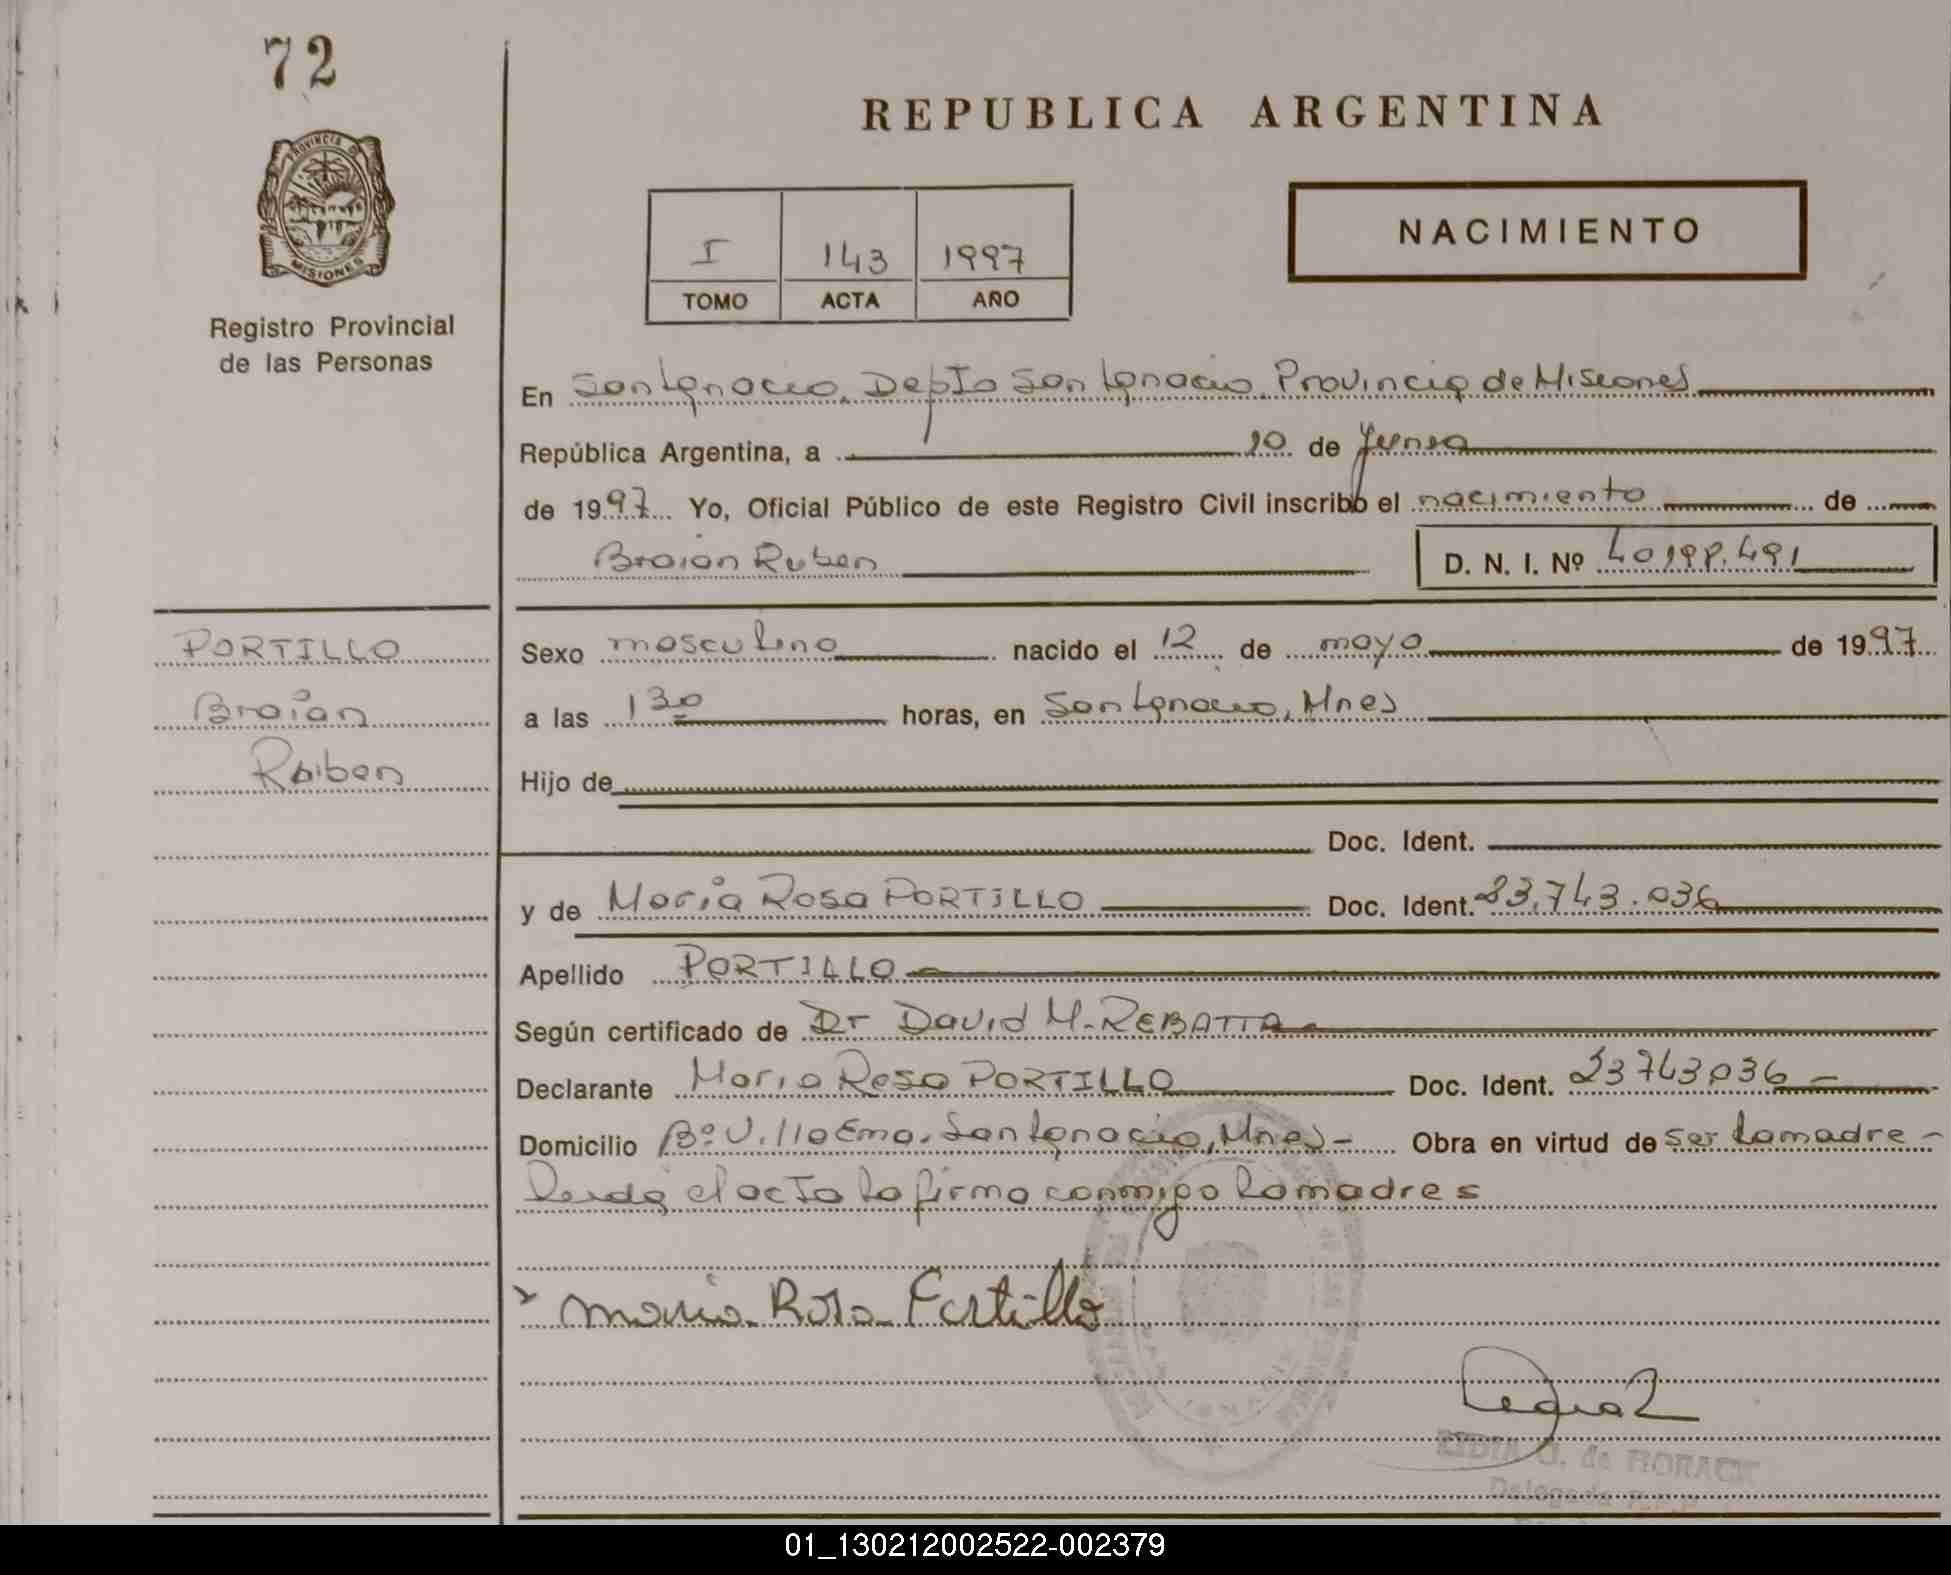 72
REPUBLICA ARGENTINA
PROVINCIA D
MISIONES
Registro Provincial
de las Personas
NACIMIENTO
I 143 1997
TOMO ACTA AÑO
En San Ignacio, Depto San Ignacio, Provincia de Misiones
República Argentina, a 10 de Junio
de 1997 Yo, Oficial Público de este Registro Civil inscribo el nacimiento de
Braian Ruben D. N. I. Nº
PORTILLO
Braian
Ruben
Sexo masculino nacido el 12 de mayo de 1997
a las 1 30 horas, en San Ignacio, Mnes
Hijo de
Doc. Ident.
y de María Rosa PORTILLO Doc. Ident. 23.743.036
Apellido PORTILLO
Según certificado de Dr David M. REBATTA
Declarante Maria Rosa PORTILLO Doc. Ident. 23743036
Domicilio Bº Villa Ema. San Ignacio, Mnes - Obra en virtud de ser la madre -
Leida el acta la firma conmigo la madre
Maria Rosa Portillo
LIDIA de
Delegada
01_130212002522-002379